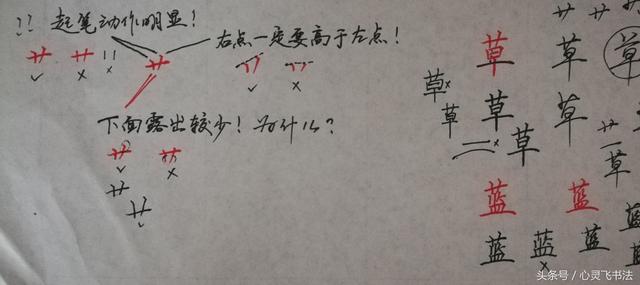 !! 起笔动作明显!
右点一定要高于左点!
艹 艹 艹
下面露出较少! 为什么?
艹 艹
艹
艹
艹 艹
草 草 草
草 草 草 草
草 艹
一
草
蓝 蓝
蓝 蓝 蓝 蓝
头条号 / 心灵飞书法